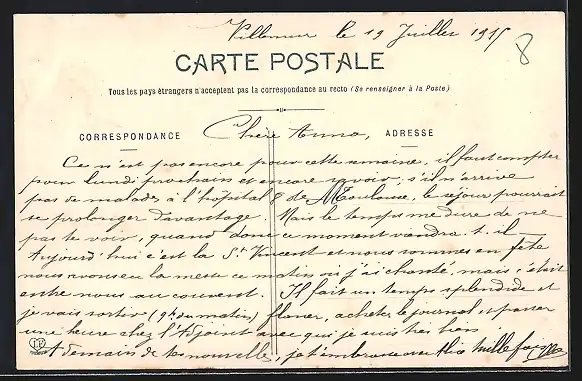 Villemur le 19 Juillet 1915
8
CARTE POSTALE
Tous les pays étrangers n'acceptent pas la correspondance au recto (Se renseigner à la Poste)
CORRESPONDANCE
ADRESSE
Chère Anna,
Ce n'est pas encore pour cette semaine, il faut compter
pour lundi prochain et encore savoir, s'il n'arrive
pas de malades à l'hôpital 8 de Toulouse, le séjour pourrait
se prolonger davantage. Mais le temps me dure de ne
pas te voir, quand donc ce moment viendra-t-il.
Aujourd'hui c'est la St Vincent et nous sommes en fête
nous avons eu la messe ce matin où j'ai chanté, mais c'était
entre nous au couvent. Il fait un temps splendide et
je vais sortir (9h du matin) flâner, acheter le journal et passer
une heure chez l'Adjoint avec qui je suis très bien
A demain de tes nouvelles, je t'embrasse mille fois